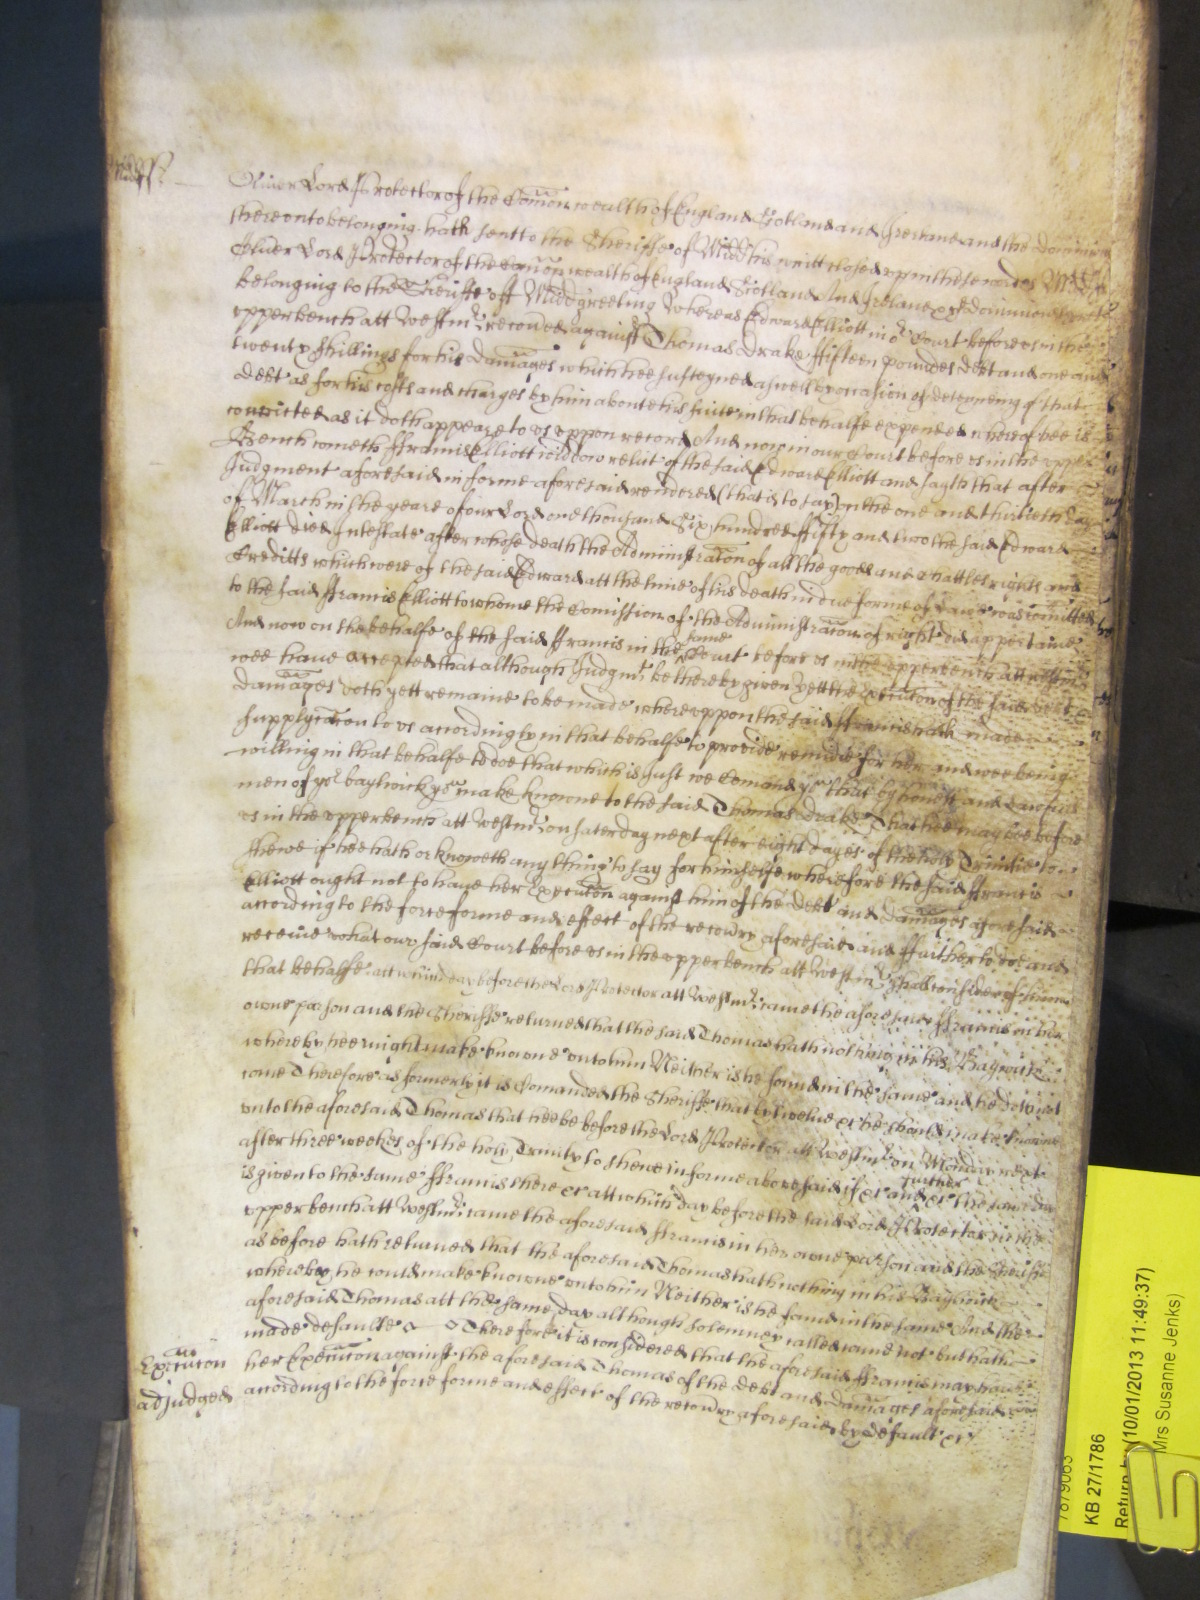 Midd ss
Oliver Lord Protector of the Com̃on wealth of England Scotland and Ireland and the Dominions
thereunto belonging hath sent to the Sheriffe of Midd his writt closed up in these wordes
Oliver Lord Protector of the Com̃on wealth of England Scotland And Ireland & ye Dominions
belonging to the Sheriffe off Midd greeting Whereas Edward Elliott in or Court before us in the
upper bench att Westmr recovered against Thomas Drake ffifteen poundes debt and one and
twenty shillings for his damãges which hee susteyned aswell by occasion of deteyneing of that
debt as for his costs and charges by him about his suite in that behalfe expended whereof hee is
convicted as it doth appeare to us uppon record And now in our Court before us in the upper
Bench cometh ffrancis Elliott widdow relict of the said Edward Elliott and sayth that after
Judgment aforesaid in forme aforesaid rendered (that is to say) on the one and thirtieth day
of March in the yeare of our Lord one thousand Six hundred ffifty and two the said Edward
Elliott died Intestate after whose death the Administrac̃on of all the goods and Chattles rights and
Creditts which were of the said Edward att the time of his death in due forme of Law was com̃itted
to the said ffrancis Elliott to whome the Comission of the Administrac̃on of right did appertaine
And now on the behalfe of the said ffrancis in the same Court before us in the upper bench att Westmr
wee have accepted that although Judgmt be thereby given yett the Execuc̃on of the said debt &
damãges doth yett remaine to be made whereuppon the said ffrancis hath made
supplycac̃on to us accordingly in that behalfe to provide remidie for her and wee being
willing in that behalfe to doe that which is Just we Comand you that by honest and lawfull
men of yor baylwick you make knowne to the said Thomas Drake That hee may bee before
us in the upper bench att Westmr on saterday next after eight dayes of the holie Trinitie to
shewe if hee hath or knoweth any thing to say for himselfe wherefore the said ffrancis
Elliott ought not to have her Execuc̃on against him of the debt and damãges aforesaid
according to the force forme and effect of the recovry aforesaid and ffurther to doe and
receive what our said Court before us in the upper bench att Westmr shall consider of him in
that behalfe att which day before the Lord Protector att Westmr came the aforesaid ffrancis in her
owne person and the Sheriffe returned that the said Thomas hath nothing in his Baylwick
whereby hee might make knowne unto him Neither is he found in the same and he doth not
come Therefore as formerly it is Comanded the Sheriffe that by twelve &c he should make knowne
unto the aforesaid Thomas that hee be before the Lord Protector att Westmr on Monday next
after three weekes of the holy Trinity to shewe in forme abovesaid if &c and further &c the same day
is given to the same ffrancis there &c att which day before the said Lord Protector in the
upper bench att Westmr came the aforesaid ffrancis in her owne person and the Sheriffe
as before hath returned that the aforesaid Thomas hath nothing in his Baylwick
whereby he could make knowne unto him Neither is he found in the same And the
aforesaid Thomas att the same day although solemney called come not but hath
made defaulte Therefore it is considered that the aforesaid ffrancis may have
Execuc̃on
her Execuc̃on against the aforesaid Thomas of the debt and damãges aforesaid
adjudged
according to the force forme and effect of the recovry aforesaid by default &c
KB 27/1786
(10/01/2013 11:49:37)
Mrs Susanne Jenks)